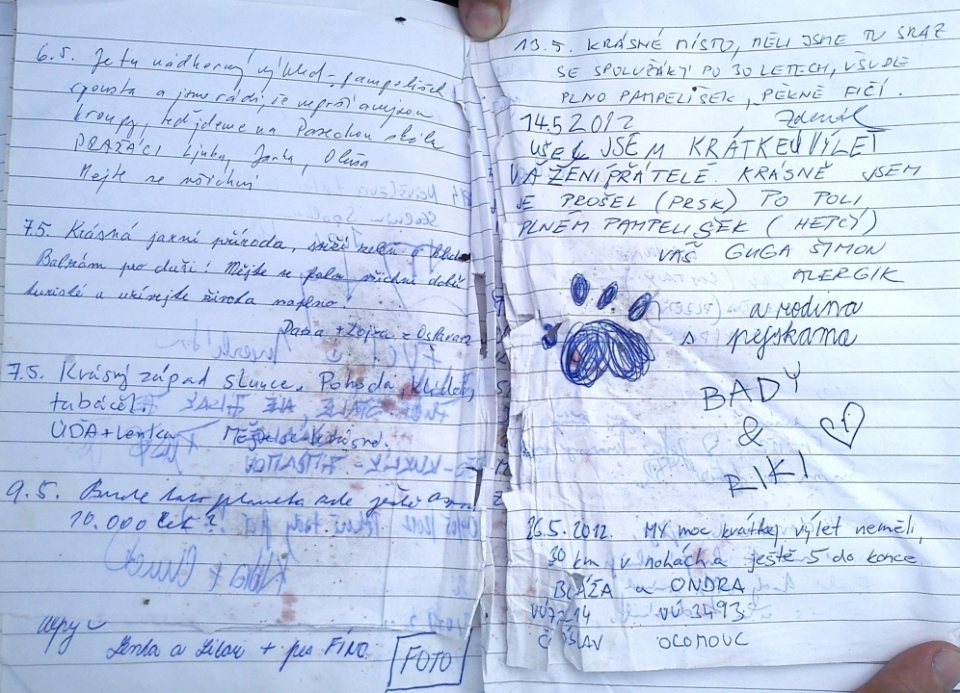 6.5. Je tu nádherný výhled - pampelišek
spousta a jsme rádi že neprší a nejsou
kroupy, teď jdeme na
PRAŽÁCI Ljuba, Jarka, Olina
Mejte se všichni
7.5. Krásná jarní příroda,
Balzám po duši! Mějte se všichni dobří
turisté a užívejte života naplno.
Dana + Lojza z Ostravy
7.5. Krásný západ slunce. Pohoda, klídek,
tabáček.
ÚDA + Lenka Mějte se krásně.
9.5. Bude tato planeta zde ještě
10.000 let?
Lenka a Libor + pes FÍNO
FOTO
13.5. KRÁSNÉ MÍSTO, MĚLI JSME TU SRAZ
SE SPOLUŽÁKY PO 30 LETECH, VŠUDE
PLNO PAMPELIŠEK, PĚKNĚ FIČÍ.
Zdeněk
14.5 2012
UŠEL JSEM KRÁTKEJ VÝLET
VÁŽENÍ PŘÁTELÉ. KRÁSNĚ JSEM
SE PROŠEL (PRSK) PO POLI
PLNÉM PAMPELIŠEK (HEPČÍ)
VÁŠ GUGA ŠIMON
ALERGIK
a rodina
s pejskama
BADY
&
RIKI
26.5.2012. MY moc krátkej výlet neměli,
30 km v nohách a ještě 5 do konce
BLÁŽA a ONDRA
VÚ7214 VÚ 3493
ČÁSLAV OLOMOUC